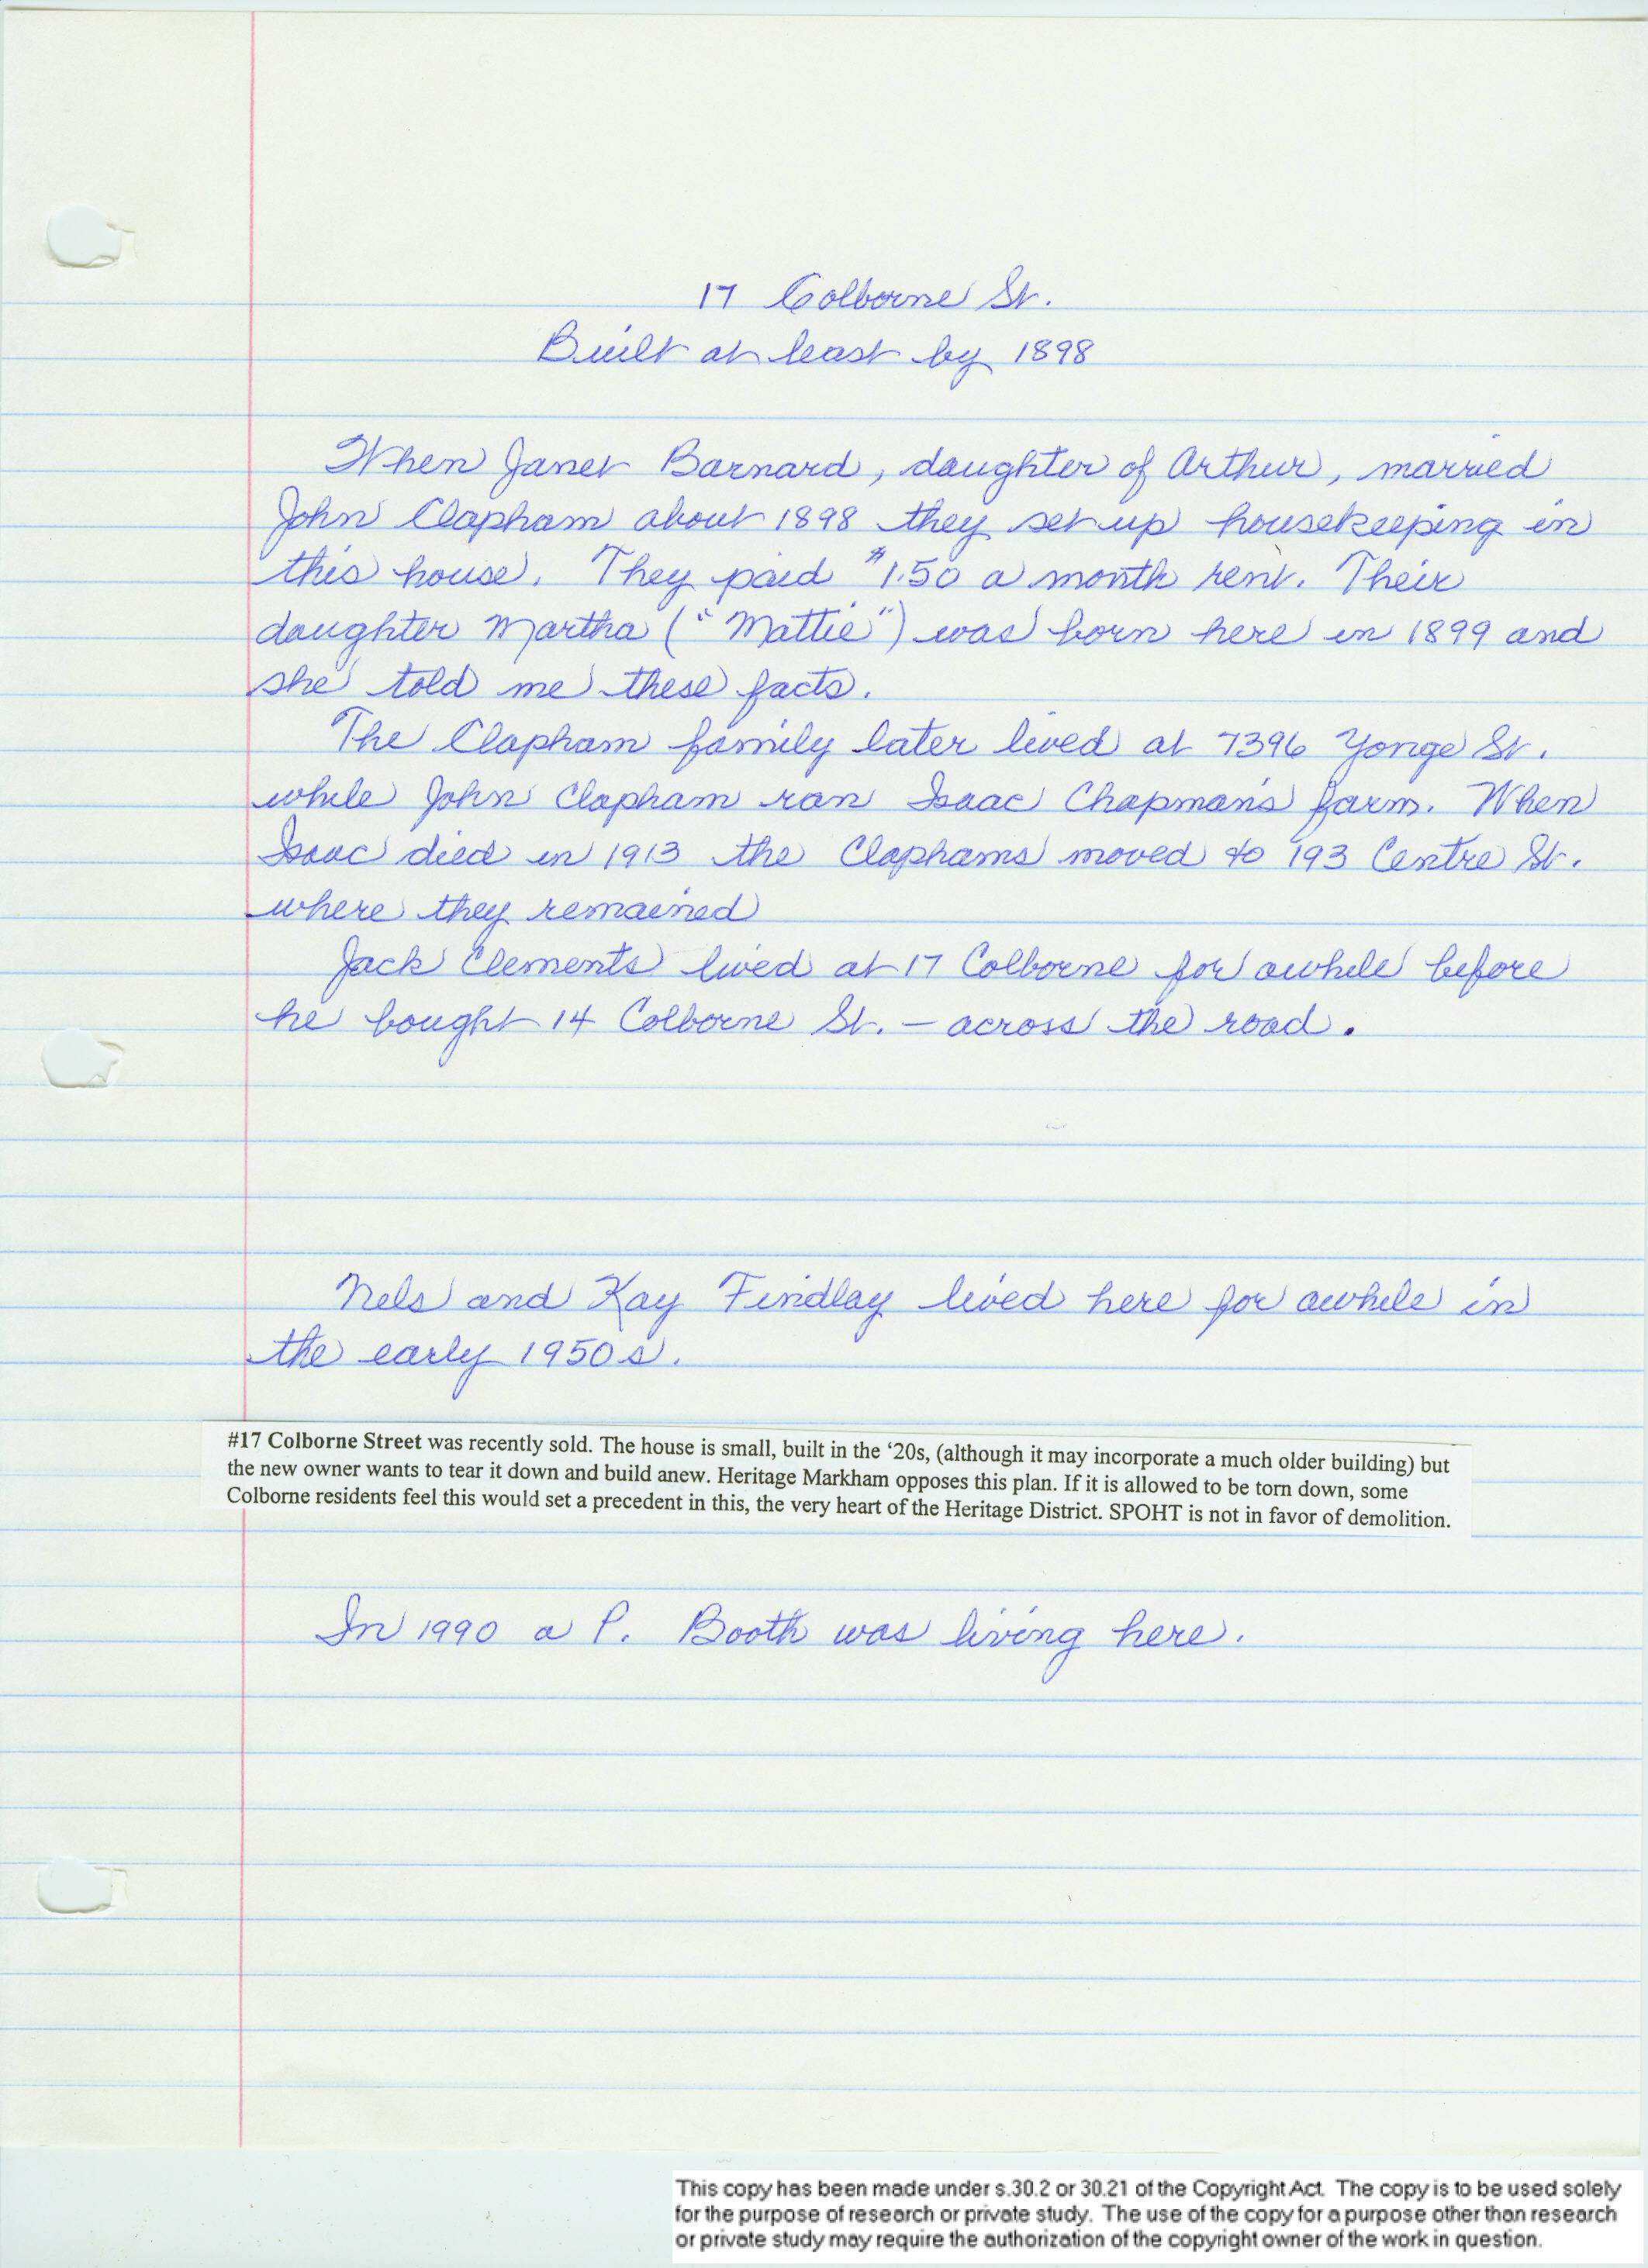 17 Colborne St.
Built at least by 1898
When Janet Barnard, daughter of Arthur, married
John Clapham about 1898 they set up housekeeping in
this house. They paid $1.50 a month rent. Their
daughter Martha ("Mattie") was born here in 1899 and
she told me these facts.
The Clapham family later lived at 7396 Yonge St.
while John Clapham ran Isaac Chapman's farm. When
Isaac died in 1913 the Claphams moved to 193 Centre St.
where they remained
Jack Clements lived at 17 Colborne for awhile before
he bought 14 Colborne St. – across the road.
Nels and Kay Findlay lived here for awhile in
the early 1950s.
#17 Colborne Street was recently sold. The house is small, built in the ‘20s, (although it may incorporate a much older building) but
the new owner wants to tear it down and build anew. Heritage Markham opposes this plan. If it is allowed to be torn down, some
Colborne residents feel this would set a precedent in this, the very heart of the Heritage District. SPOHT is not in favor of demolition.
In 1990 a P. Booth was living here.
This copy has been made under s.30.2 or 30.21 of the Copyright Act. The copy is to be used solely
for the purpose of research or private study. The use of the copy for a purpose other than research
or private study may require the authorization of the copyright owner of the work in question.